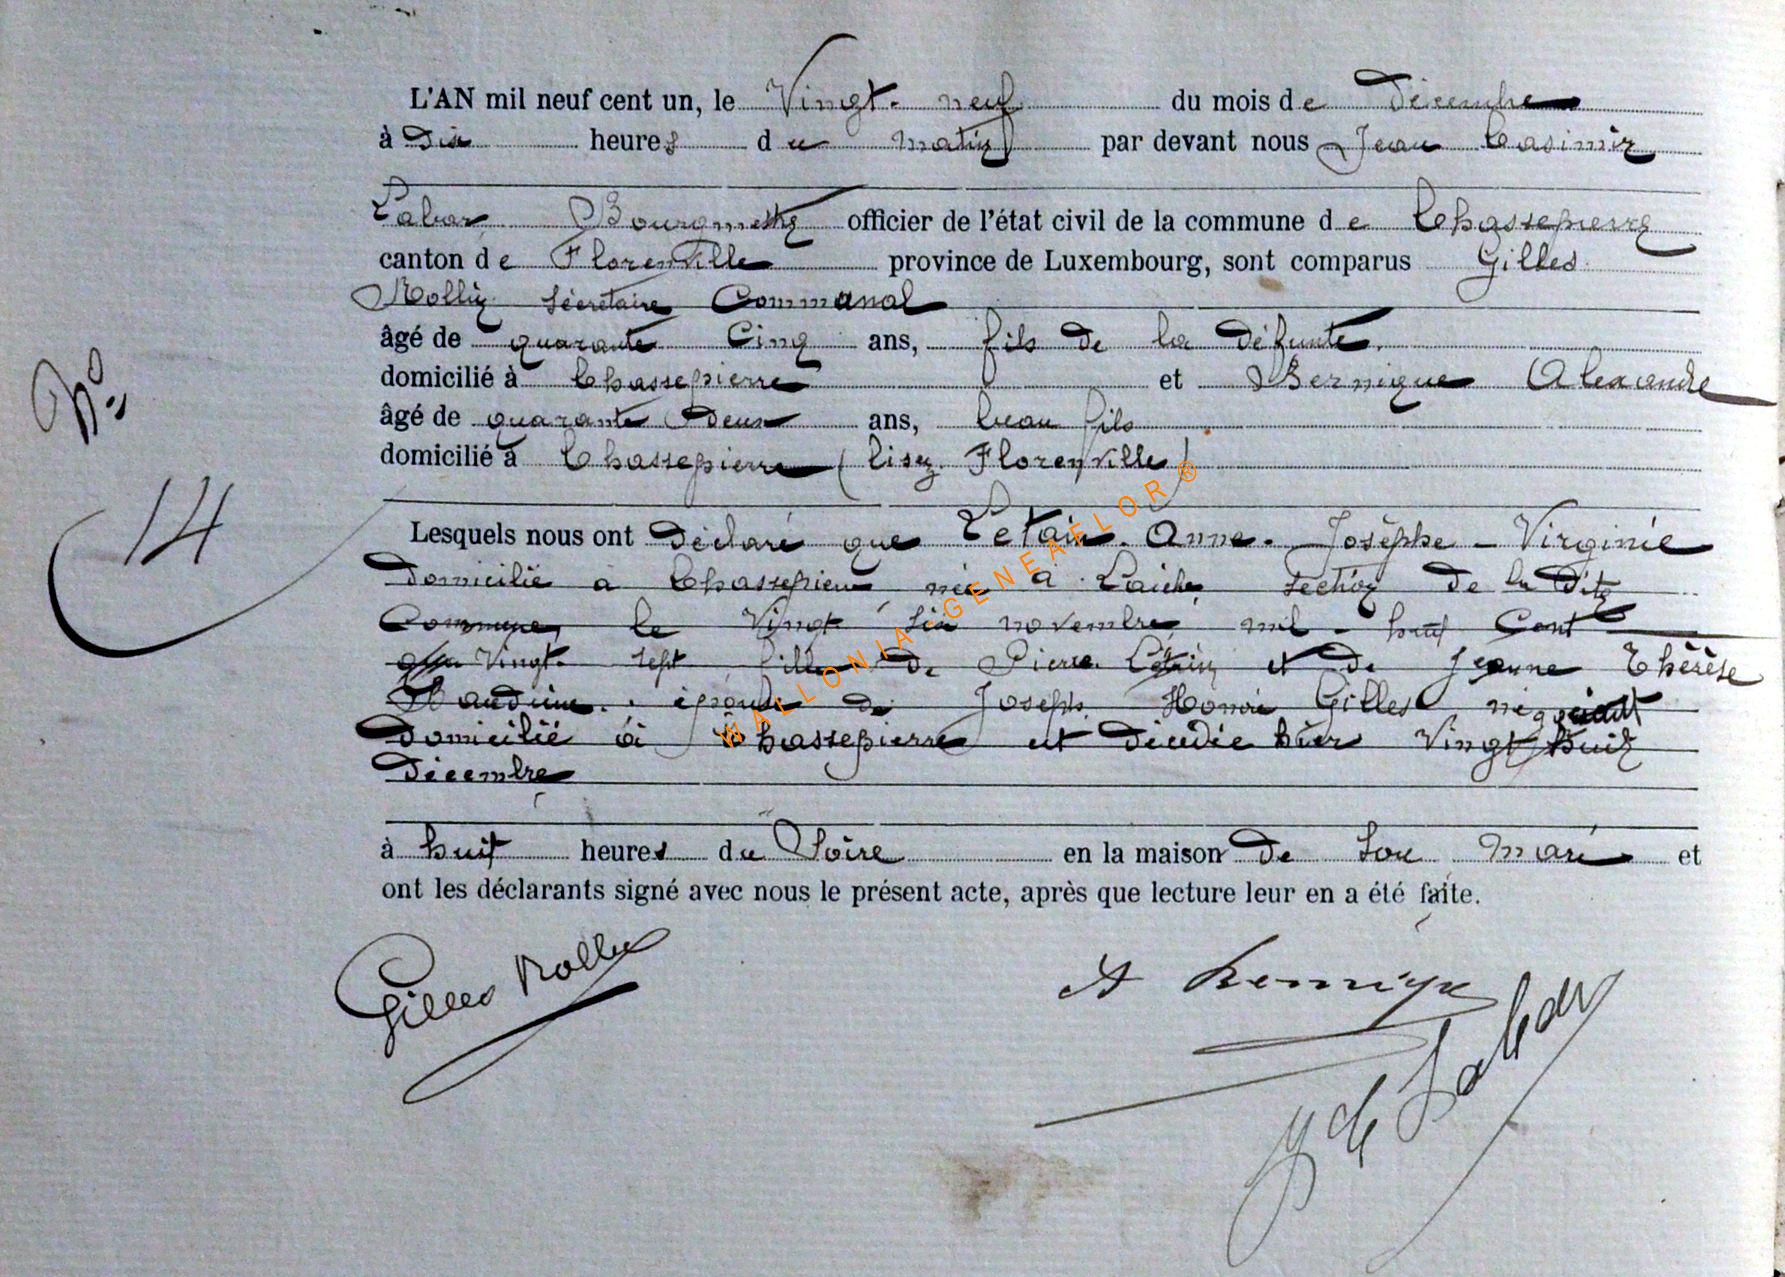 L'AN mil neuf cent un, le Vingt-neuf du mois de décembre
à dix heures du matin par devant nous Jean Casimir
Labar Bourgmestre officier de l'état civil de la commune de Chassepierre
canton de Florenville province de Luxembourg, sont comparus Gilles
Rollin secrétaire Communal
âgé de quarante Cinq ans, fils de la défunte.
domicilié à Chassepierre et Alexandre
âgé de quarante deux ans, beau fils
domicilié à Chassepierre (lisez Florenville)
Nº
14
Lesquels nous ont déclaré que Létain Anne-Josèphe-Virginie
domicilié à Chassepierre née à Laiche section de la dite
Commune, le Vingt six novembre mil-huit Cent
Vingt-sept fille de Pierre Létain et de Jeanne Thérèse
Baudrine épouse de Joseph Honoré Gilles négociant
domicilié à Chassepierre est décédée hier Vingt huit
décembre
à huit heures du Soire en la maison de son mari et
ont les déclarants signé avec nous le présent acte, après que lecture leur en a été faite.
Gilles Rollin
A
Labar
WALLONIA GENEAFLOR ®